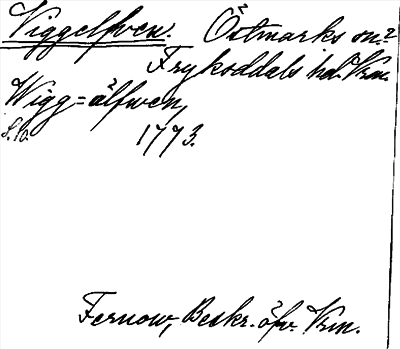 Viggelfven. Östmarks sn.?
Frykoddals hd. Vrm.
Wigg=älfwen,
S. 10. 1773.
Fernow, Beskr. öfv. Vrm.